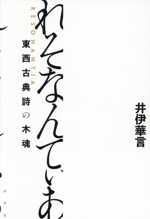 れそなんてぃあ
RESONANTIA
東西古典詩の木魂
井伊華言